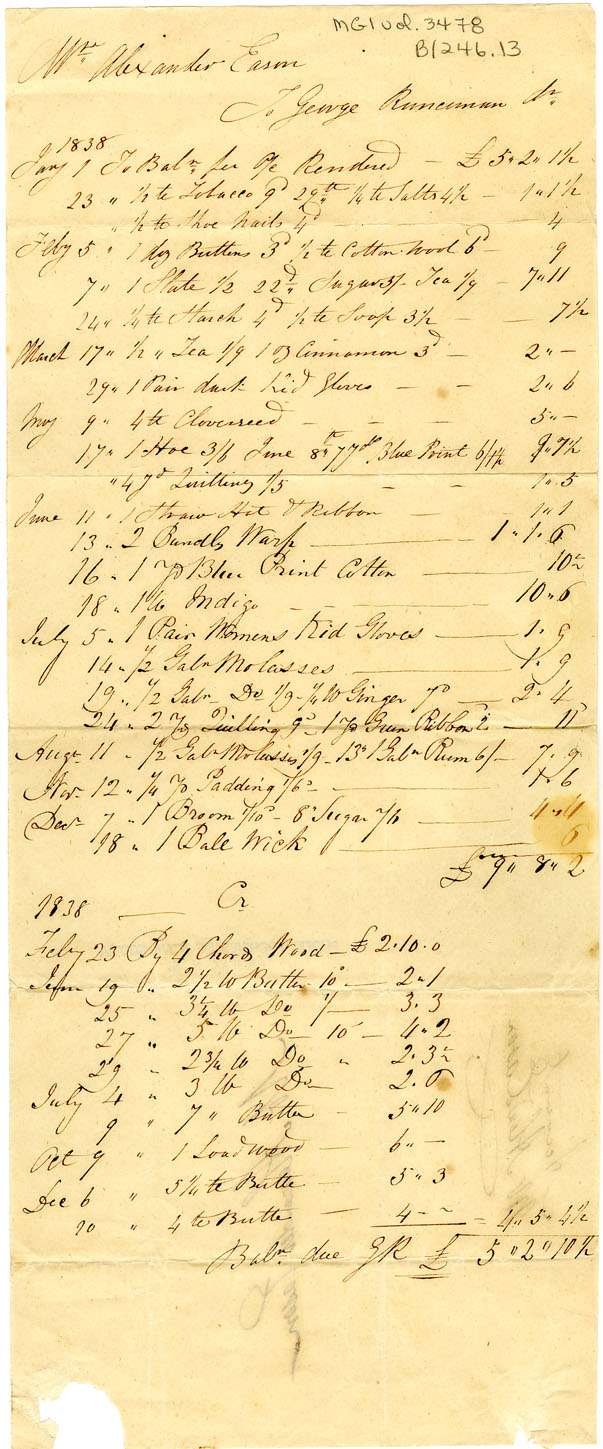 MG1 Vol. 3478
B1246.13
Mrs Alexander Eason
To George Runciman Dr
1838
Jany 1 To Baln per a/c Rendered — £ 5 " 2 " 1 ½
23 " ½ lb Tobacco 9d 29th ¼ lb Salts 4½ — 1 " 1 ½
" ½ lb Shoe Nails 4d — 4
Feby 5 " 1 doz Buttons 3d ½ lb Cotton Wool 6d — 9
7 " 1 Slate 1/2 22d Sugar 3/- Tea 1/9 — 7 " 11
24 " ¼ lb Starch 4d ½ lb Soap 3½ — — 7 ½
March 17 " ½ " Tea 1/9 1 oz Cinnamon 3d — 2 " —
29 " 1 Pair dark Kid Gloves — — 2 " 6
May 9 " 4 lb Cloverseed — — — 5 " —
17 " 1 Hoe 3/6 June 8th 7 yds Blue Print 6/1½ 9 " 7½
" 4 yd Quilling 1/5 — — 1 " 5
June 11 " 1 Straw Hat & Ribbon — — 1 " 1
13 " 2 Bundls Warp — 1 " 1 " 6
16 " 1 yd Blue Print Cotton — 10½
18 " 1 lb Indigo — — — 10 " 6
July 5 " 1 Pair Womens Kid Gloves — 1 " 9
14 " ½ Galn Molasses — 1 " 9
19 " ½ Galn Do 1/9 - ¼ lb Ginger 7d — 2 " 4
24 " 2 yd Quilling 9d 1 yd Green Ribbon 2d — 11
Augt 11 " ½ Galn Molasses 1/9 - 13th 1 Galn Rum 6/- 7 " 9
Novr 12 " ¼ yd Padding — 1 " 6
Decr 7 " 1 Broom 1/10 - 8th Sugar — 4 " 4
18 " 1 Bale Wick — 6
£ 9 " 8 " 2
1838 — Cr
Feby 23 By 4 Chords Wood — £ 2 . 10 . 0
June 19 " 2 ½ lb Butter 10d — 2 " 1
25 " 3 ¼ lb Do 1/- 3 . 3
27 " 5 lb Do 10 — 4 " 2
29 " 2 ¾ lb Do " 2 . 3½
July 4 " 3 lb Do 2 . 6
9 " 7 " Butter - 5 " 10
Oct 9 " 1 Load wood — 6 " —
Dec 6 " 5 ¼ lb Butter - 5 " 3
20 " 4 lb Butter — 4 - - = 4 " 5 " 4 ½
Baln due GR £ 5 " 2 " 10 ½